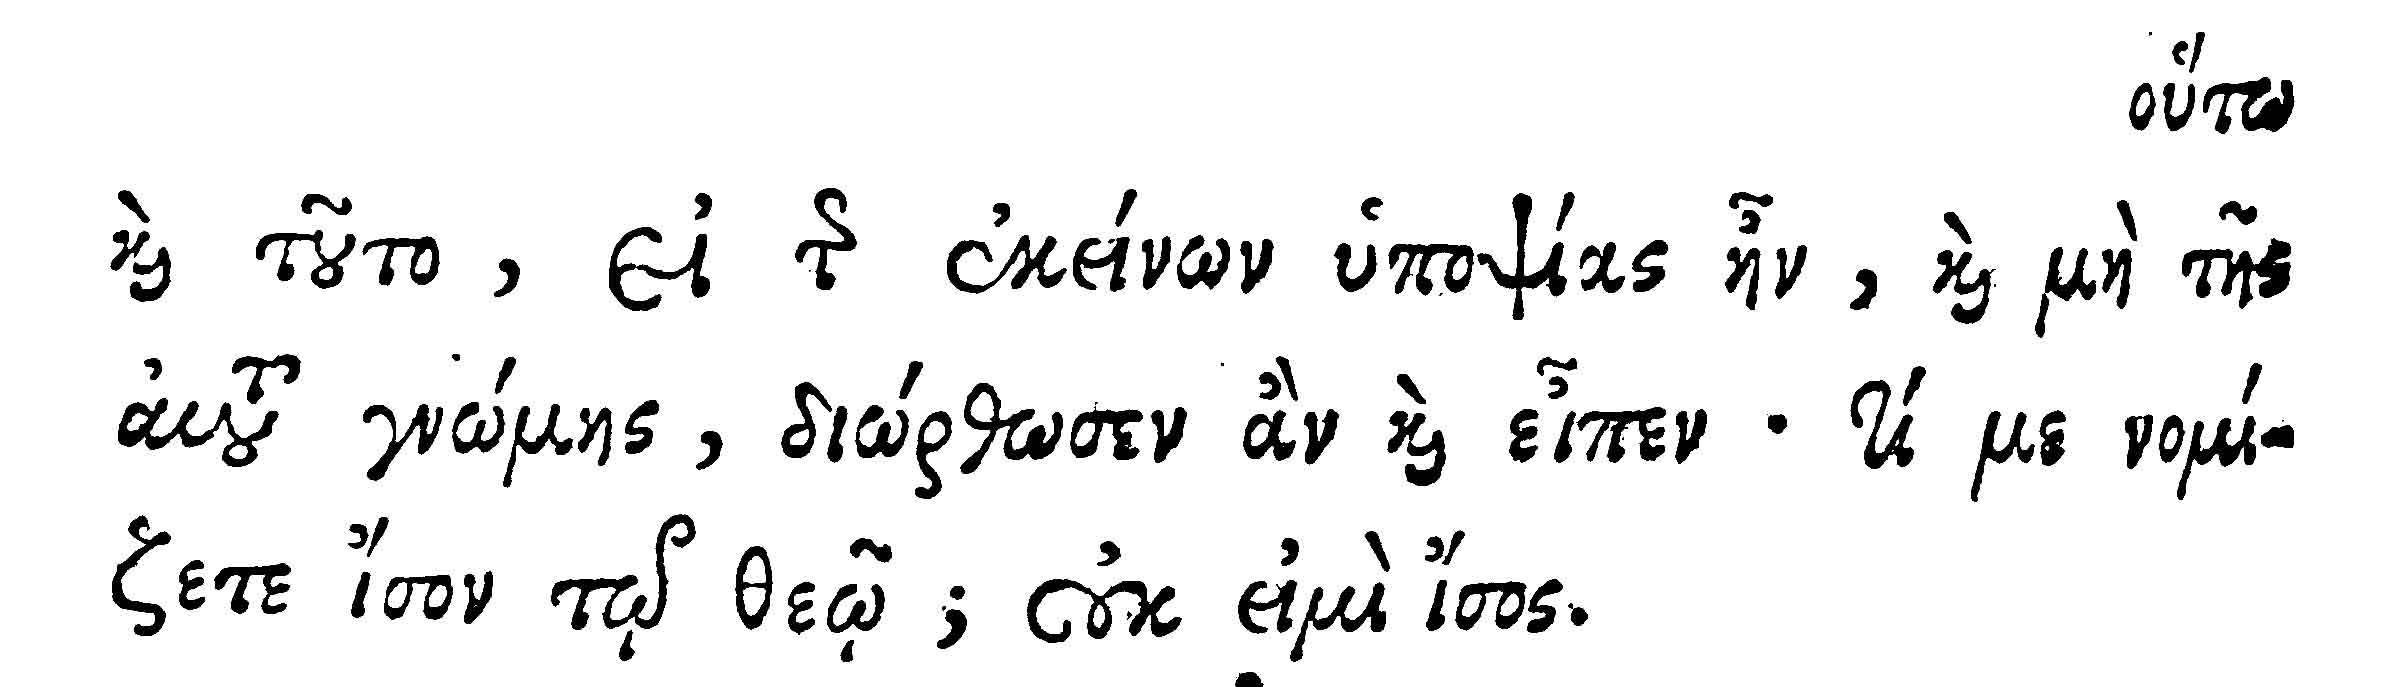 οὕτω
καὶ τοῦτο, εἰ τῆς ἐκείνων ὑποψίας ἦν, καὶ μὴ τῆς
αὐτοῦ γνώμης, διώρθωσεν ἂν καὶ εἶπεν· τί με νομί-
ζετε ἴσον τῷ θεῷ; οὐκ εἰμὶ ἴσος.